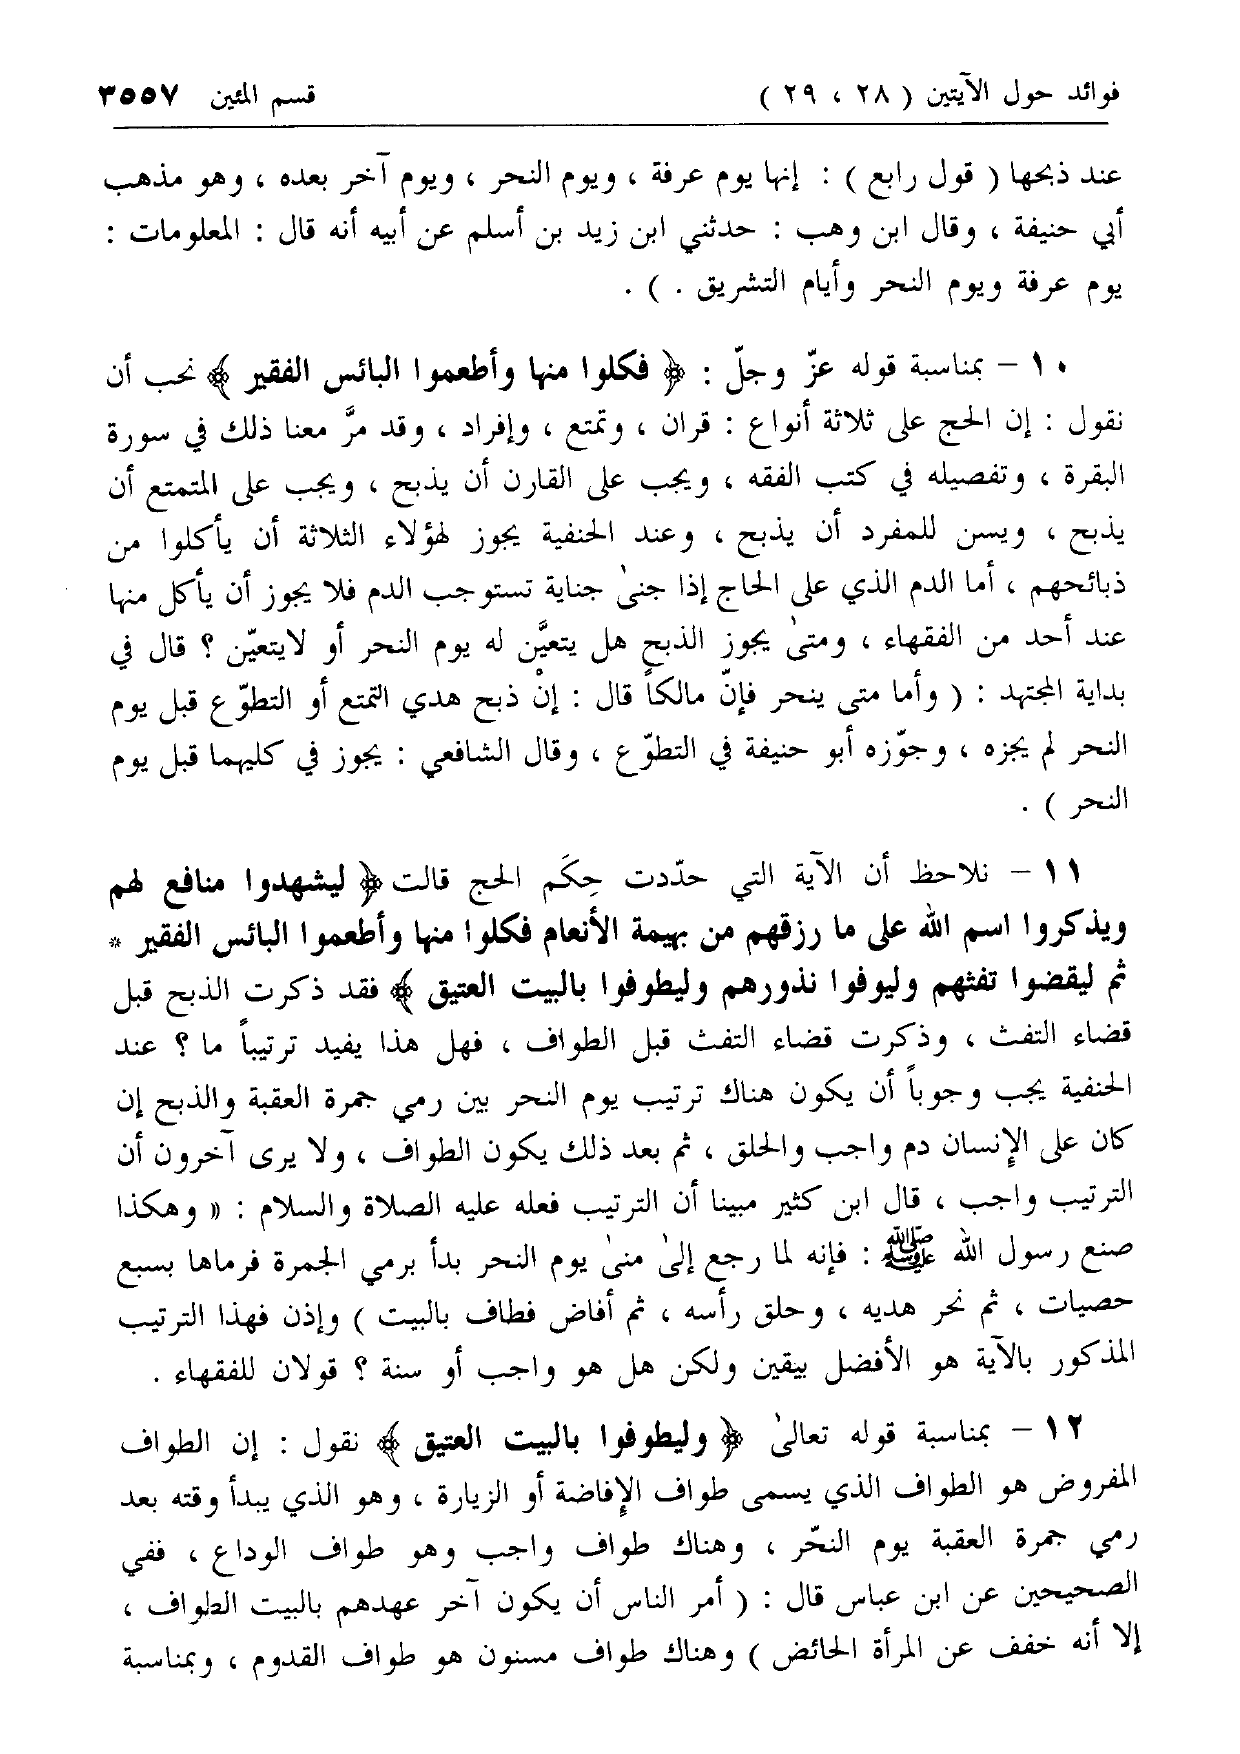 فوائد حول الآيتين ( ٢٨ ، ٢٩ ) قسم المئين ٣٥٥٧
عند ذبحها ( قول رابع ) : إنها يوم عرفة ، ويوم النحر ، ويوم آخر بعده ، وهو مذهب
أبي حنيفة ، وقال ابن وهب : حدثني ابن زيد بن أسلم عن أبيه أنه قال : المعلومات :
يوم عرفة ويوم النحر وأيام التشريق . ) .
١٠ – بمناسبة قوله عزّ وجلّ : ﴿ فكلوا منها وأطعموا البائس الفقير ﴾ نحب أن
نقول : إن الحج على ثلاثة أنواع : قران ، وتمتع ، وإفراد ، وقد مرَّ معنا ذلك في سورة
البقرة ، وتفصيله في كتب الفقه ، ويجب على القارن أن يذبح ، ويجب على المتمتع أن
يذبح ، ويسن للمفرد أن يذبح ، وعند الحنفية يجوز لهؤلاء الثلاثة أن يأكلوا من
ذبائحهم ، أما الدم الذي على الحاج إذا جنىٰ جناية تستوجب الدم فلا يجوز أن يأكل منها
عند أحد من الفقهاء ، ومتىٰ يجوز الذبح هل يتعيَّن له يوم النحر أو لايتعيّن ؟ قال في
بداية المجتهد : ( وأما متى ينحر فإنّ مالكاً قال : إنْ ذبح هدي التمتع أو التطوّع قبل يوم
النحر لم يجزه ، وجوّزه أبو حنيفة في التطوّع ، وقال الشافعي : يجوز في كليهما قبل يوم
النحر ) .
١١ – نلاحظ أن الآية التي حدّدت حِكَم الحج قالت ﴿ ليشهدوا منافع لهم
ويذكروا اسم الله على ما رزقهم من بهيمة الأنعام فكلوا منها وأطعموا البائس الفقير *
ثم ليقضوا تفثهم وليوفوا نذورهم وليطوفوا بالبيت العتيق ﴾ فقد ذكرت الذبح قبل
قضاء التفث ، وذكرت قضاء التفث قبل الطواف ، فهل هذا يفيد ترتيباً ما ؟ عند
الحنفية يجب وجوباً أن يكون هناك ترتيب يوم النحر بين رمي جمرة العقبة والذبح إن
كان على الإنسان دم واجب والحلق ، ثم بعد ذلك يكون الطواف ، ولا يرى آخرون أن
الترتيب واجب ، قال ابن كثير مبينا أن الترتيب فعله عليه الصلاة والسلام : « وهكذا
صنع رسول الله ﷺ : فإنه لما رجع إلىٰ منىٰ يوم النحر بدأ برمي الجمرة فرماها بسبع
حصيات ، ثم نحر هديه ، وحلق رأسه ، ثم أفاض فطاف بالبيت ) وإذن فهذا الترتيب
المذكور بالآية هو الأفضل بيقين ولكن هل هو واجب أو سنة ؟ قولان للفقهاء .
١٢ – بمناسبة قوله تعالىٰ ﴿ وليطوفوا بالبيت العتيق ﴾ نقول : إن الطواف
المفروض هو الطواف الذي يسمى طواف الإفاضة أو الزيارة ، وهو الذي يبدأ وقته بعد
رمي جمرة العقبة يوم النحّر ، وهناك طواف واجب وهو طواف الوداع ، ففي
الصحيحين عن ابن عباس قال : ( أمر الناس أن يكون آخر عهدهم بالبيت الطواف ،
إلا أنه خفف عن المرأة الحائض ) وهناك طواف مسنون هو طواف القدوم ، وبمناسبة